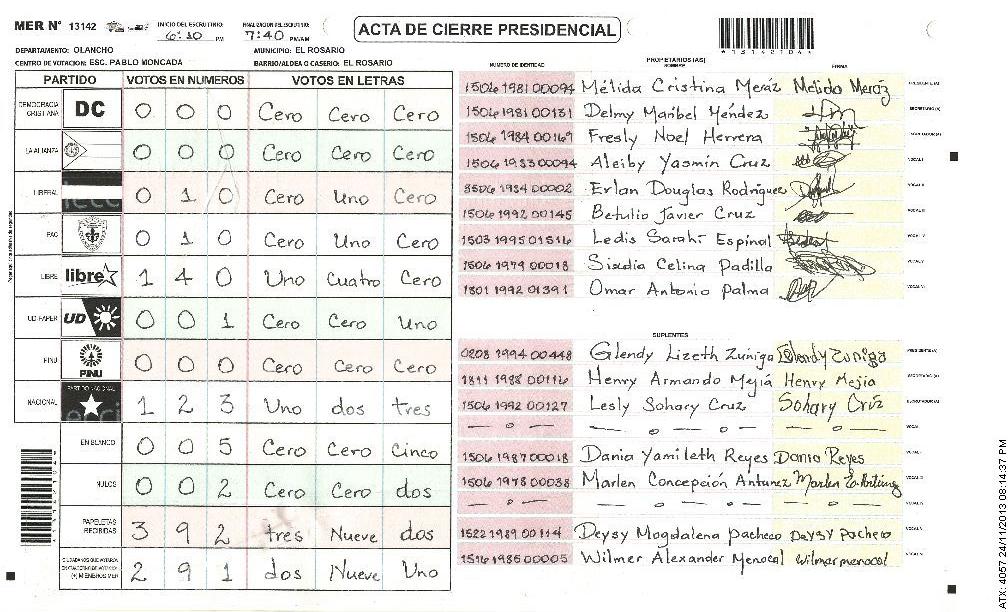 MER N° 13142 INICIO DEL ESCRUTINIO: 6:10 PM FINALIZACION DEL ESCRUTINIO: 7:40 PM/AM
ACTA DE CIERRE PRESIDENCIAL
DEPARTAMENTO: OLANCHO MUNICIPIO: EL ROSARIO
CENTRO DE VOTACION: ESC. PABLO MONCADA BARRIO/ALDEA O CASERIO: EL ROSARIO
PARTIDO VOTOS EN NUMEROS VOTOS EN LETRAS
DEMOCRACIA CRISTIANA DC 0 0 0 Cero Cero Cero
LA ALIANZA 0 0 0 Cero Cero Cero
LIBERAL 0 1 0 Cero Uno Cero
PAC 0 1 0 Cero Uno Cero
LIBRE libre 1 4 0 Uno Cuatro Cero
UD-FAPER UD 0 0 1 Cero Cero Uno
PINU PINU 0 0 0 Cero Cero Cero
NACIONAL PARTIDO NACIONAL 1 2 3 Uno dos tres
EN BLANCO 0 0 5 Cero Cero Cinco
NULOS 0 0 2 Cero Cero dos
PAPELETAS RECIBIDAS 3 9 2 tres Nueve dos
2 9 1 dos Nueve Uno
(+) MIEMBROS MER
PROPIETARIOS (AS)
NUMERO DE IDENTIDAD NOMBRE FIRMA
1506 1981 00094 Mélida Cristina Meráz Melida Meráz
1506 1981 00151 Delmy Maribel Méndez
1506 1984 00169 Fresly Noel Herrera
1506 1983 00094 Aleiby Yasmín Cruz
1506 1984 00002 Erlan Douglas Rodríguez
1506 1992 00145 Betulio Javier Cruz
1503 1995 01516 Ledis Sarahí Espinal
1506 1979 00018 Celina Padilla
1801 1992 01391 Omar Antonio Palma
SUPLENTES
0208 1994 00448 Glendy Lizeth Zúniga Glendy Zuniga
1811 1988 00116 Henry Armando Mejiá Henry Mejia
1506 1992 00127 Lesly Sohary Cruz Sohary Cruz
— o — — o — — o —
1506 1987 00018 Dania Yamileth Reyes Dania Reyes
1506 1978 00038 Marlen Concepción Antunez Marlen
— o — — o — — o —
1522 1989 00114 Deysy Magdalena Pacheco Deysy Pacheco
1516 1985 00005 Wilmer Alexander Menocal wilmar menocal
ATX: 4057 24/11/2013 08:14:37 PM